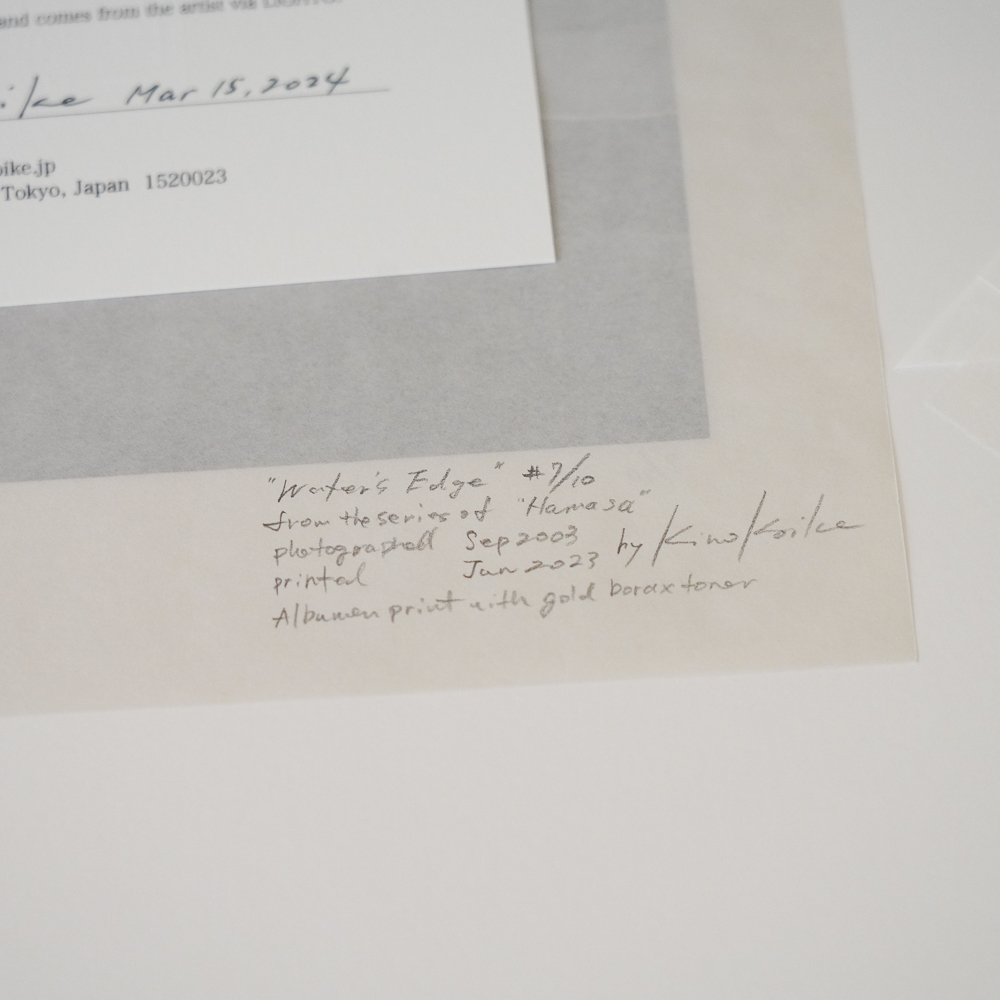 and comes from the artist via
ike Mar 15, 2024
oike.jp
Tokyo, Japan 1520023
"Water's Edge" #7/10
from the series of "Hamasa"
photographed Sep 2003
printed Jun 2023 by Kino Koike
Albumen print with gold borax toner